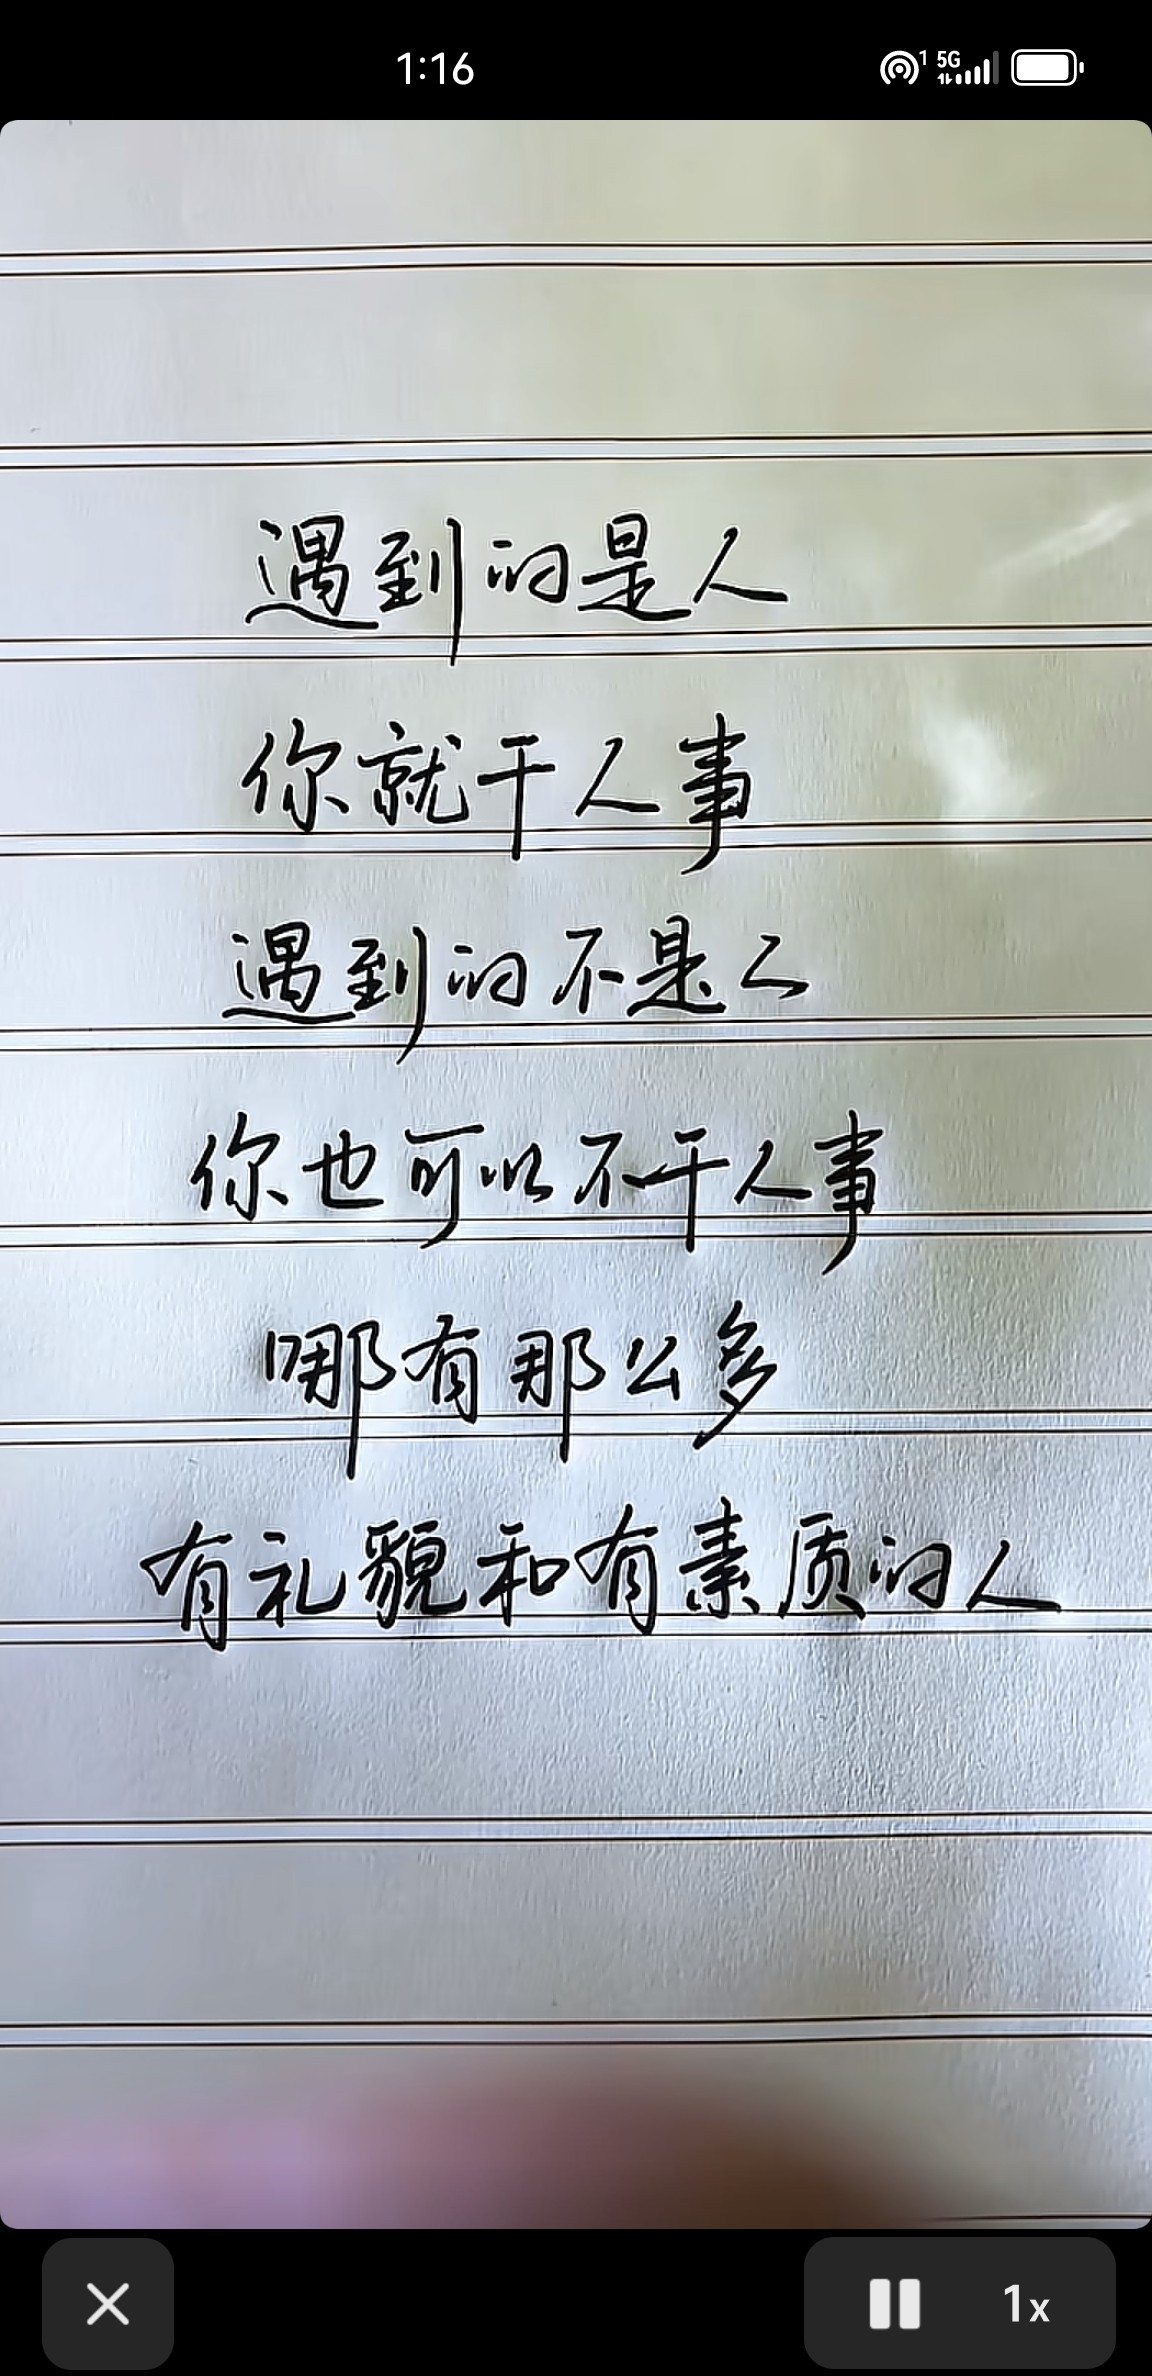 1:16
5G
遇到的是人
你就干人事
遇到的不是人
你也可以不干人事
哪有那么多
有礼貌和有素质的人
1x